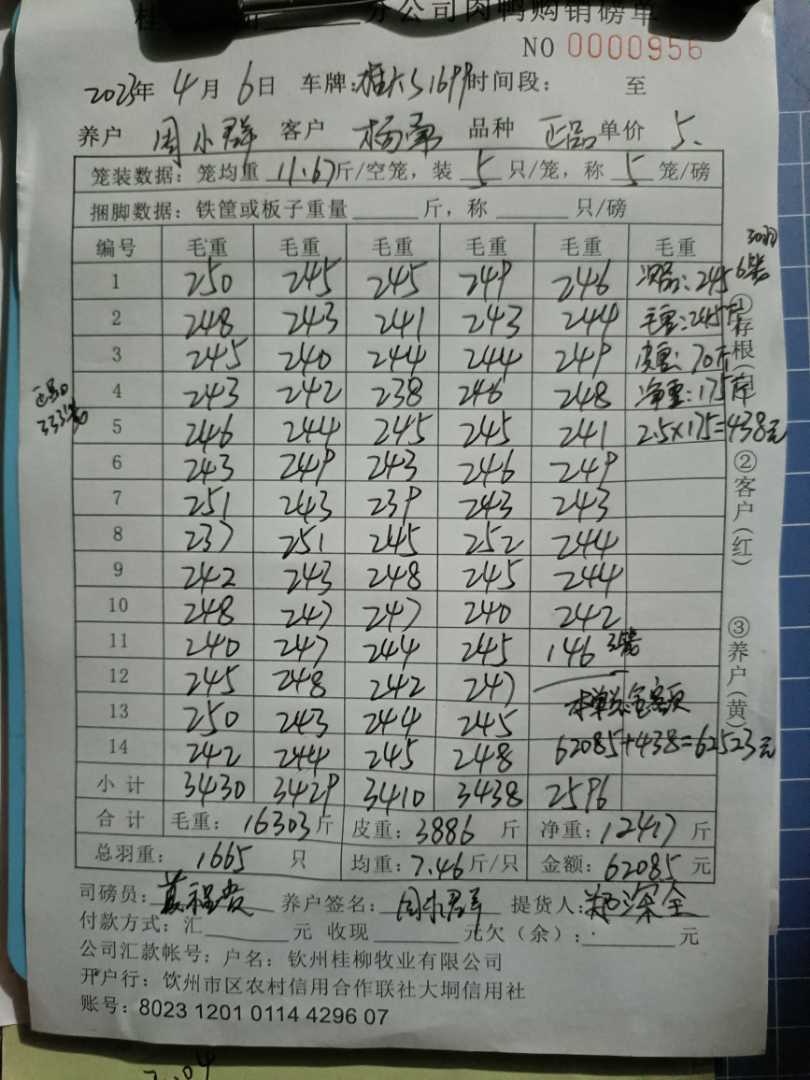 分公司肉鸭购销磅单
NO 0000956
2023年 4月 6日 车牌: 时间段: 至
养户 周小群 客户 杨 品种 正品 单价 5.
笼装数据: 笼均重 11.67斤/空笼, 装 5 只/笼, 称 5 笼/磅
捆脚数据: 铁筐或板子重量 斤, 称 只/磅
30羽
6笼
编号 毛重 毛重 毛重 毛重 毛重 毛重
1 250 245 245 249 246 次品: 245
2 248 243 241 243 244 毛重: 245斤
3 245 240 244 244 249 皮重: 70斤
4 243 242 238 246 248 净重: 175斤
正品
333笼
5 246 244 245 245 241 2.5×175=438元
6 243 249 243 246 249
7 251 243 239 243 243
8 237 251 245 252 244
9 242 243 248 245 244
10 248 247 247 240 242
11 240 247 244 245 146 3笼
12 245 248 242 247
13 250 243 244 245 本单总金额
14 242 244 245 248 62085+438=62523元
小计 3430 3429 3410 3438 2596
合计 毛重: 16303斤 皮重: 3886 斤 净重: 12417 斤
总羽重: 1665 只 均重: 7.46斤/只 金额: 62085 元
①存根(
②客户(红)
③养户(黄)
司磅员: 养户签名: 周小群 提货人:
付款方式: 汇 元 收现 元欠(余): 元
公司汇款帐号: 户名: 钦州桂柳牧业有限公司
开户行: 饮州市区农村信用合作联社大垌信用社
账号: 8023 1201 0114 4296 07